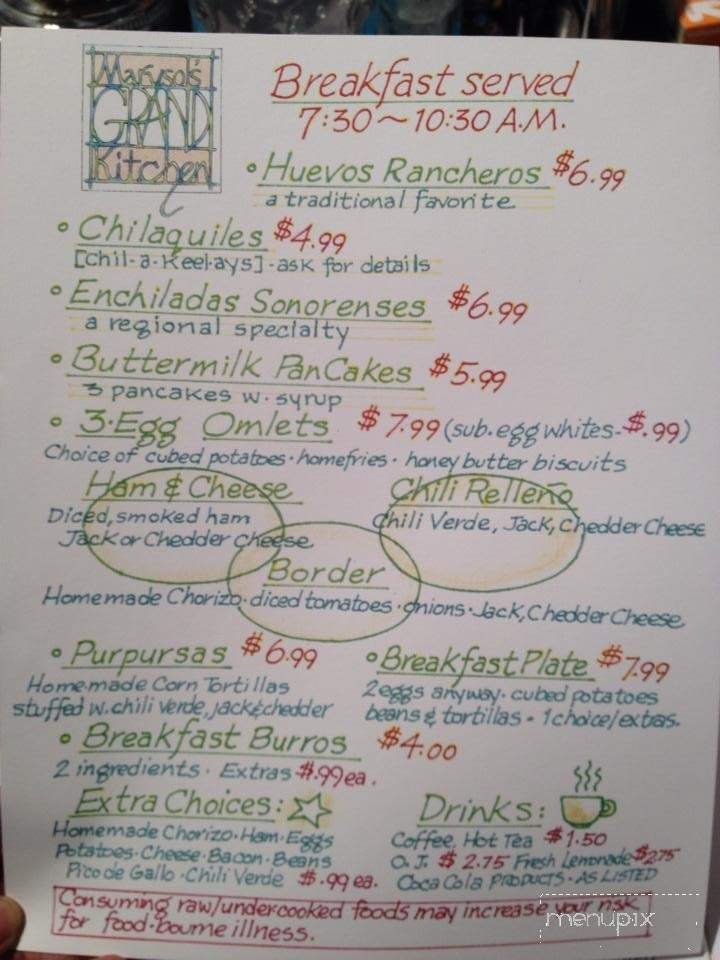 Marysol's
GRAND
Kitchen
Breakfast served
7:30~10:30 A.M.
• Huevos Rancheros $6.99
a traditional favorite
• Chilaquiles $4.99
[chil-a-Keel-ays]-ask for details
• Enchiladas Sonorenses $6.99
a regional specialty
• Buttermilk PanCakes $5.99
3 pancakes w. syrup
• 3·Egg Omlets $7.99 (sub. egg whites-$.99)
Choice of cubed potatoes · homefries · honey butter biscuits
Ham & Cheese
Diced, smoked ham
Jack or Chedder cheese
Chili Relleño
Chili Verde, Jack, Chedder Cheese
Border
Homemade Chorizo · diced tomatoes · onions · Jack, Chedder Cheese
• Purpursas $6.99
Homemade Corn Tortillas
stuffed w. chili verde, jack & chedder
• Breakfast Plate $7.99
2 eggs anyway · cubed potatoes
beans & tortillas - 1 choice/extras.
• Breakfast Burros $4.00
2 ingredients · Extras $.99 ea.
Extra Choices:
Homemade Chorizo · Ham · Eggs
Potatoes · Cheese · Bacon · Beans
Pico de Gallo · Chili Verde $.99 ea.
Drinks:
Coffee, Hot Tea $1.50
O.J. $2.75 Fresh Lemonade $2.75
Coca Cola PRODUCTS - AS LISTED
Consuming raw/undercooked foods may increase your risk
for food-bourne illness.
menupix